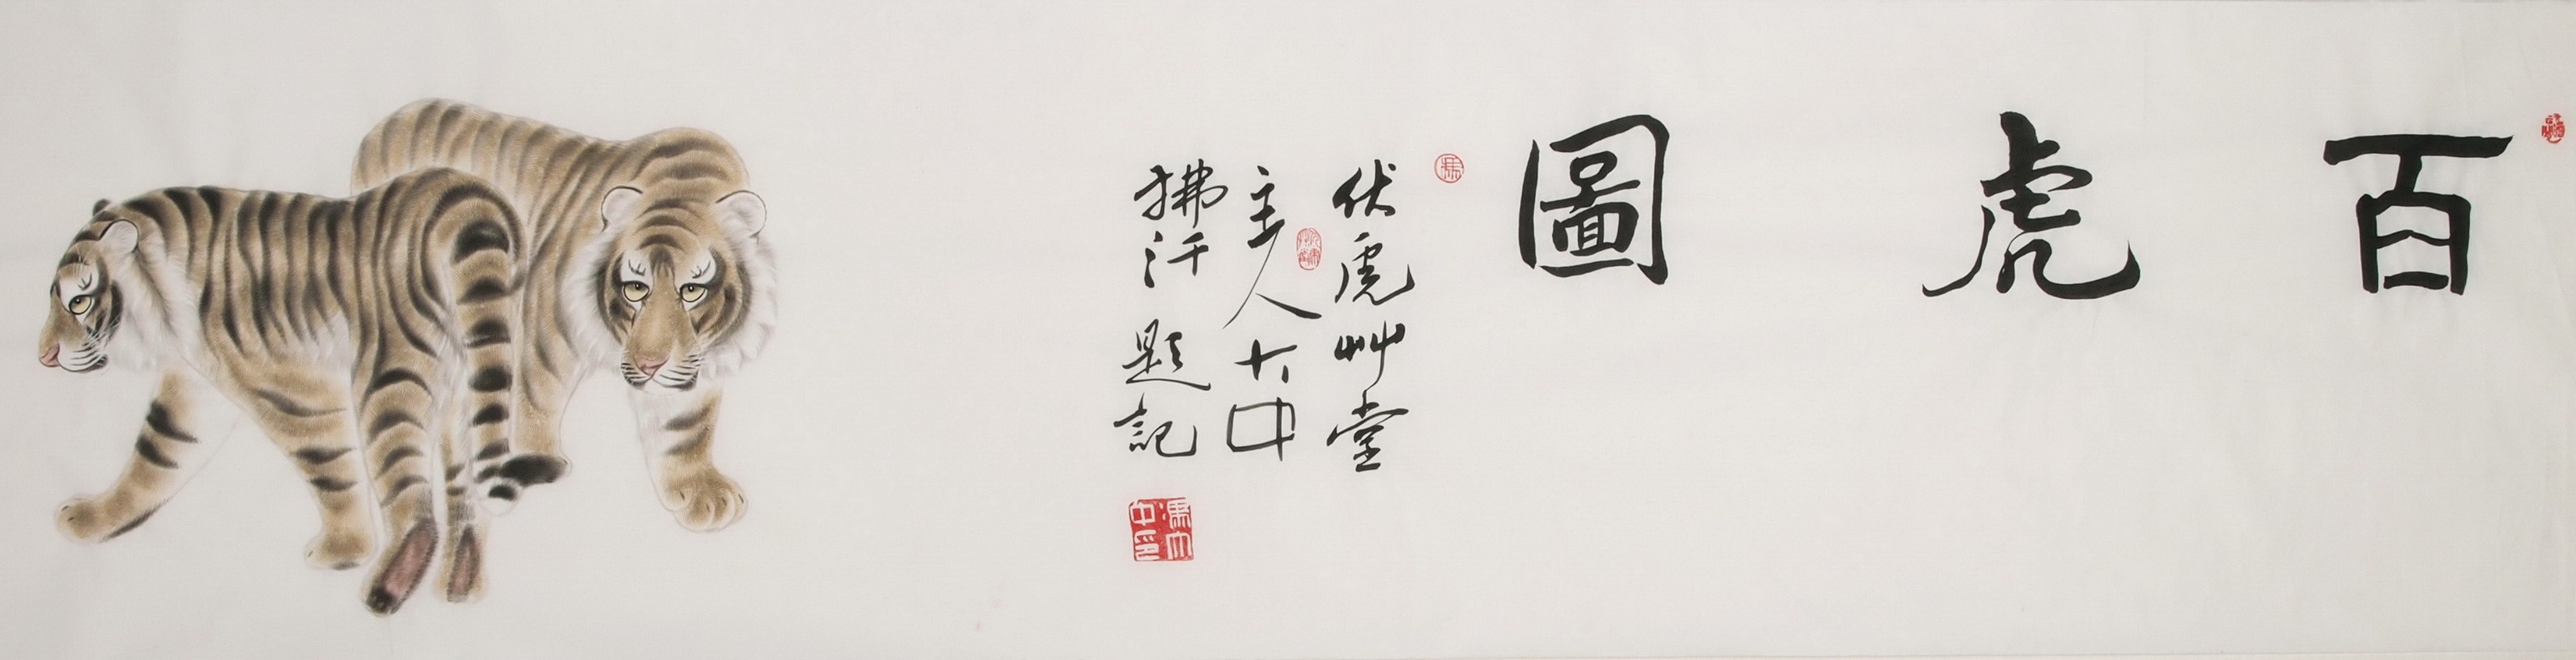 百虎圖
伏虎艸堂
主人大中
拂汗題記